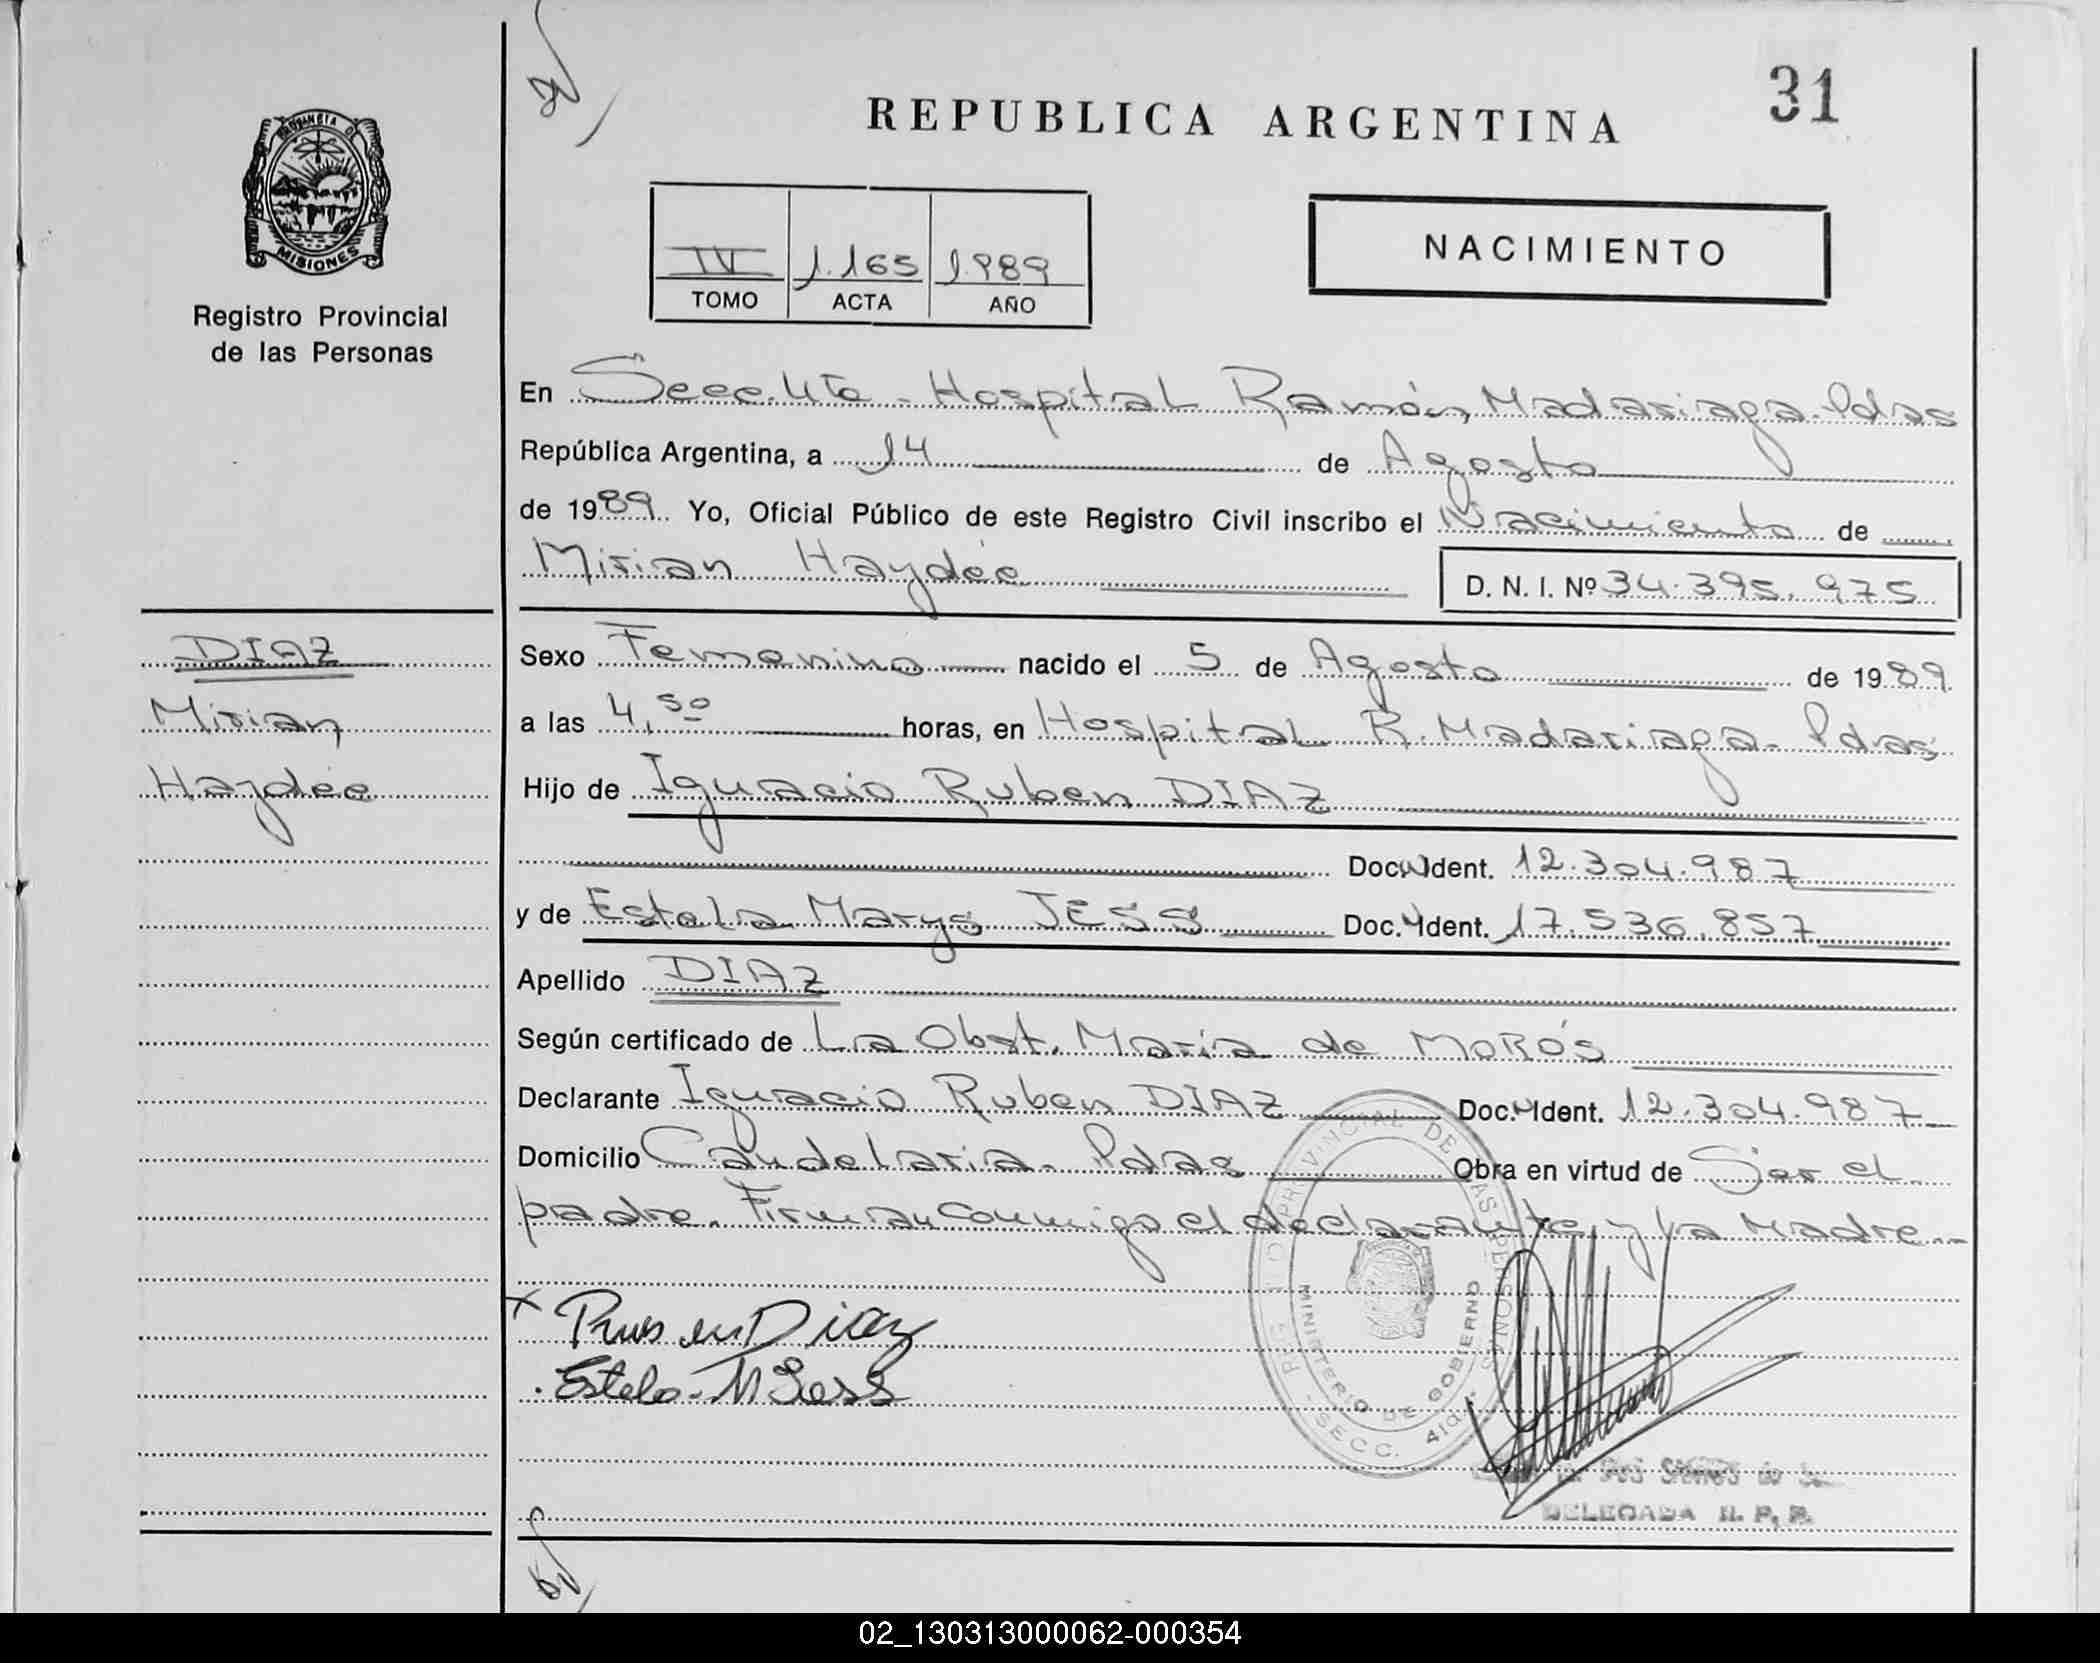 31
REPUBLICA ARGENTINA
PROVINCIA DE
MISIONES
Registro Provincial
de las Personas
IV 1.165 1.989
TOMO ACTA AÑO
NACIMIENTO
En Secc. 41a - Hospital Ramón Madariaga - Pdas
República Argentina, a 14 de Agosto
de 1989. Yo, Oficial Público de este Registro Civil inscribo el Nacimiento de
Mirian Haydée D. N. I. Nº 34.395.975
DIAZ
Mirian
Haydée
Sexo Femenino nacido el 5 de Agosto de 1989
a las 4,50 horas, en Hospital R. Madariaga - Pdas
Hijo de Ignacio Ruben DIAZ
Doc. Ident. 12.304.987
y de Estela Marys JESS Doc. Ident. 17.536.857
Apellido DIAZ
Según certificado de La Obst. María de MORÓS
Declarante Ignacio Ruben DIAZ Doc. Ident. 12.304.987
Domicilio Candelaria - Pdas Obra en virtud de Ser el
padre. Firman conmigo el declarante y la Madre
x Ruben Diaz
Estela M Jess
PROVINCIAL DE LAS PERSONAS
MINISTERIO DE GOBIERNO
SECC. 41a
DELEGADA R. P. P.
02_130313000062-000354